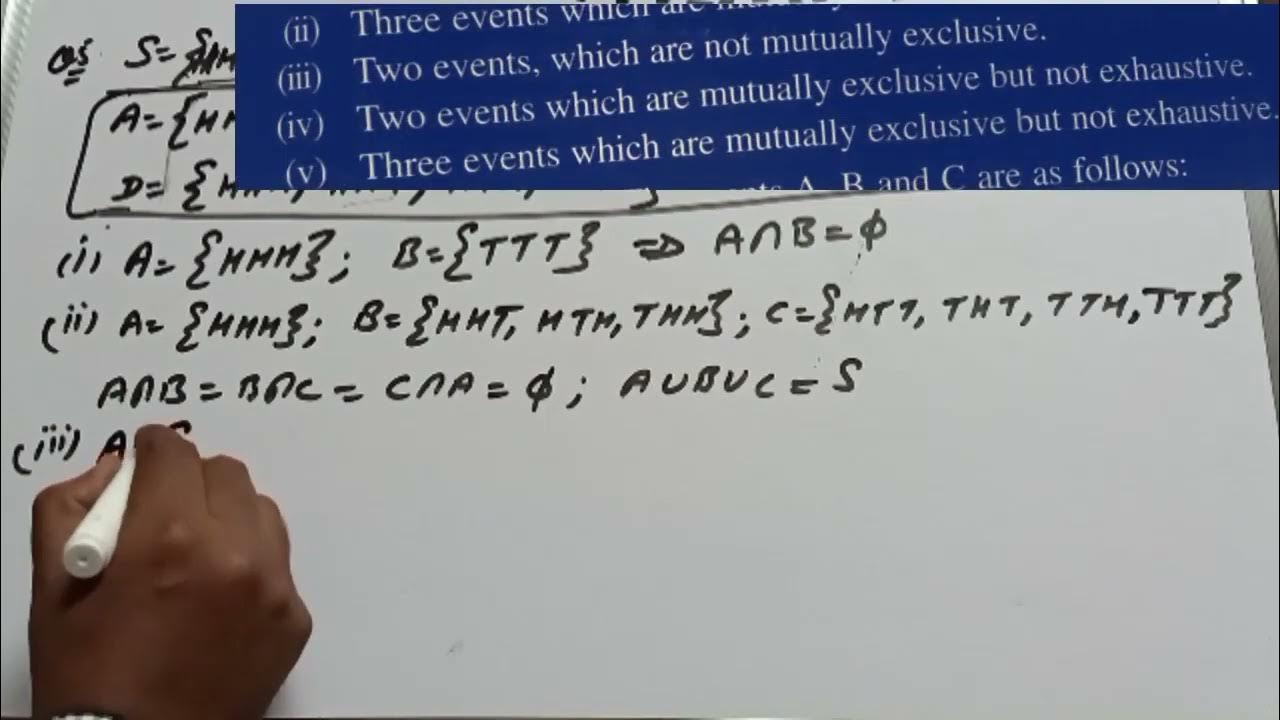 (ii) Three events which are mutually
(iii) Two events, which are not mutually exclusive.
(iv) Two events which are mutually exclusive but not exhaustive.
(v) Three events which are mutually exclusive but not exhaustive.
A, B and C are as follows:
Q5 S= {
A= {HH
D= {
(i) A= {HHH}; B= {TTT} ⇒ A∩B = ϕ
(ii) A= {HHH}; B= {HHT, HTH, THH}; C= {HTT, THT, TTH, TTT}
A∩B = B∩C = C∩A = ϕ; A∪B∪C = S
(iii) A